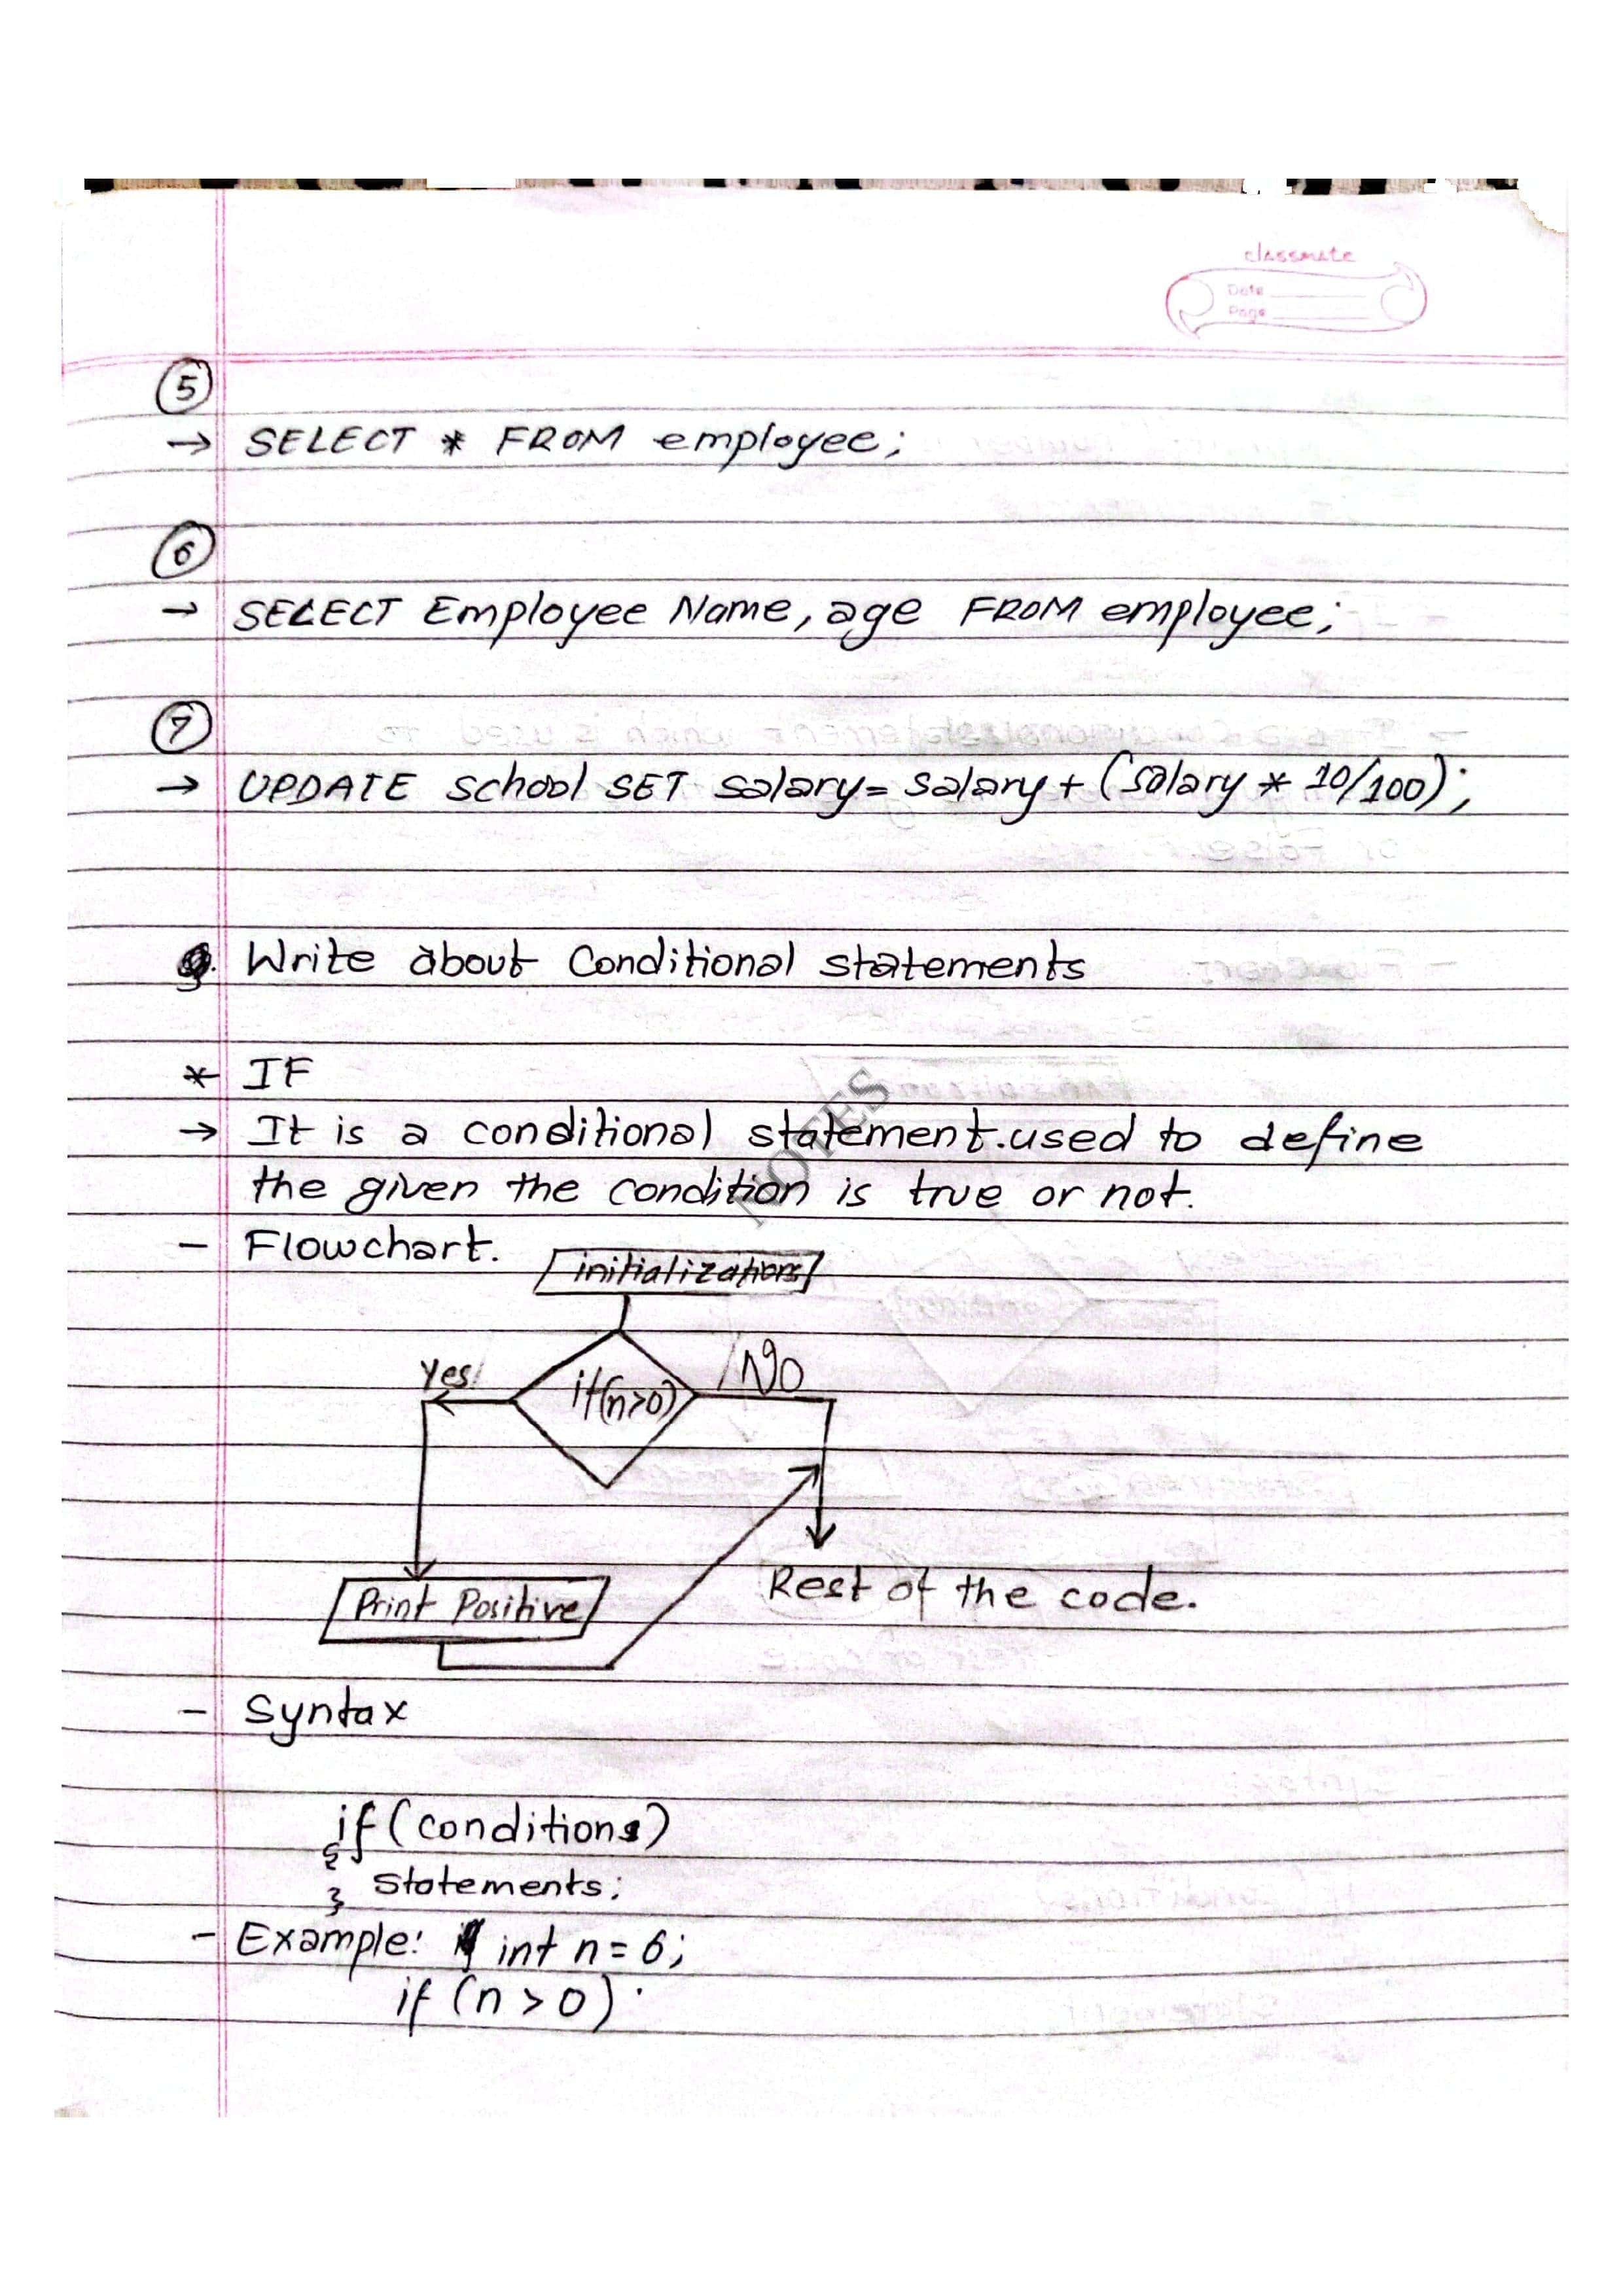 classmate
Date
Page
5
→ SELECT * FROM employee;
6
→ SELECT Employee Name, age FROM employee;
7
→ UPDATE school SET salary = salary + (salary * 10/100);
Write about Conditional statements
* IF
→ It is a conditional statement. used to define
the given the condition is true or not.
NOTES
- Flowchart.
initializations
Yes
if(n>0)
No
Print Positive
Rest of the code.
- Syntax
if (conditions)
{
Statements;
}
- Example: int n = 6;
if (n > 0)